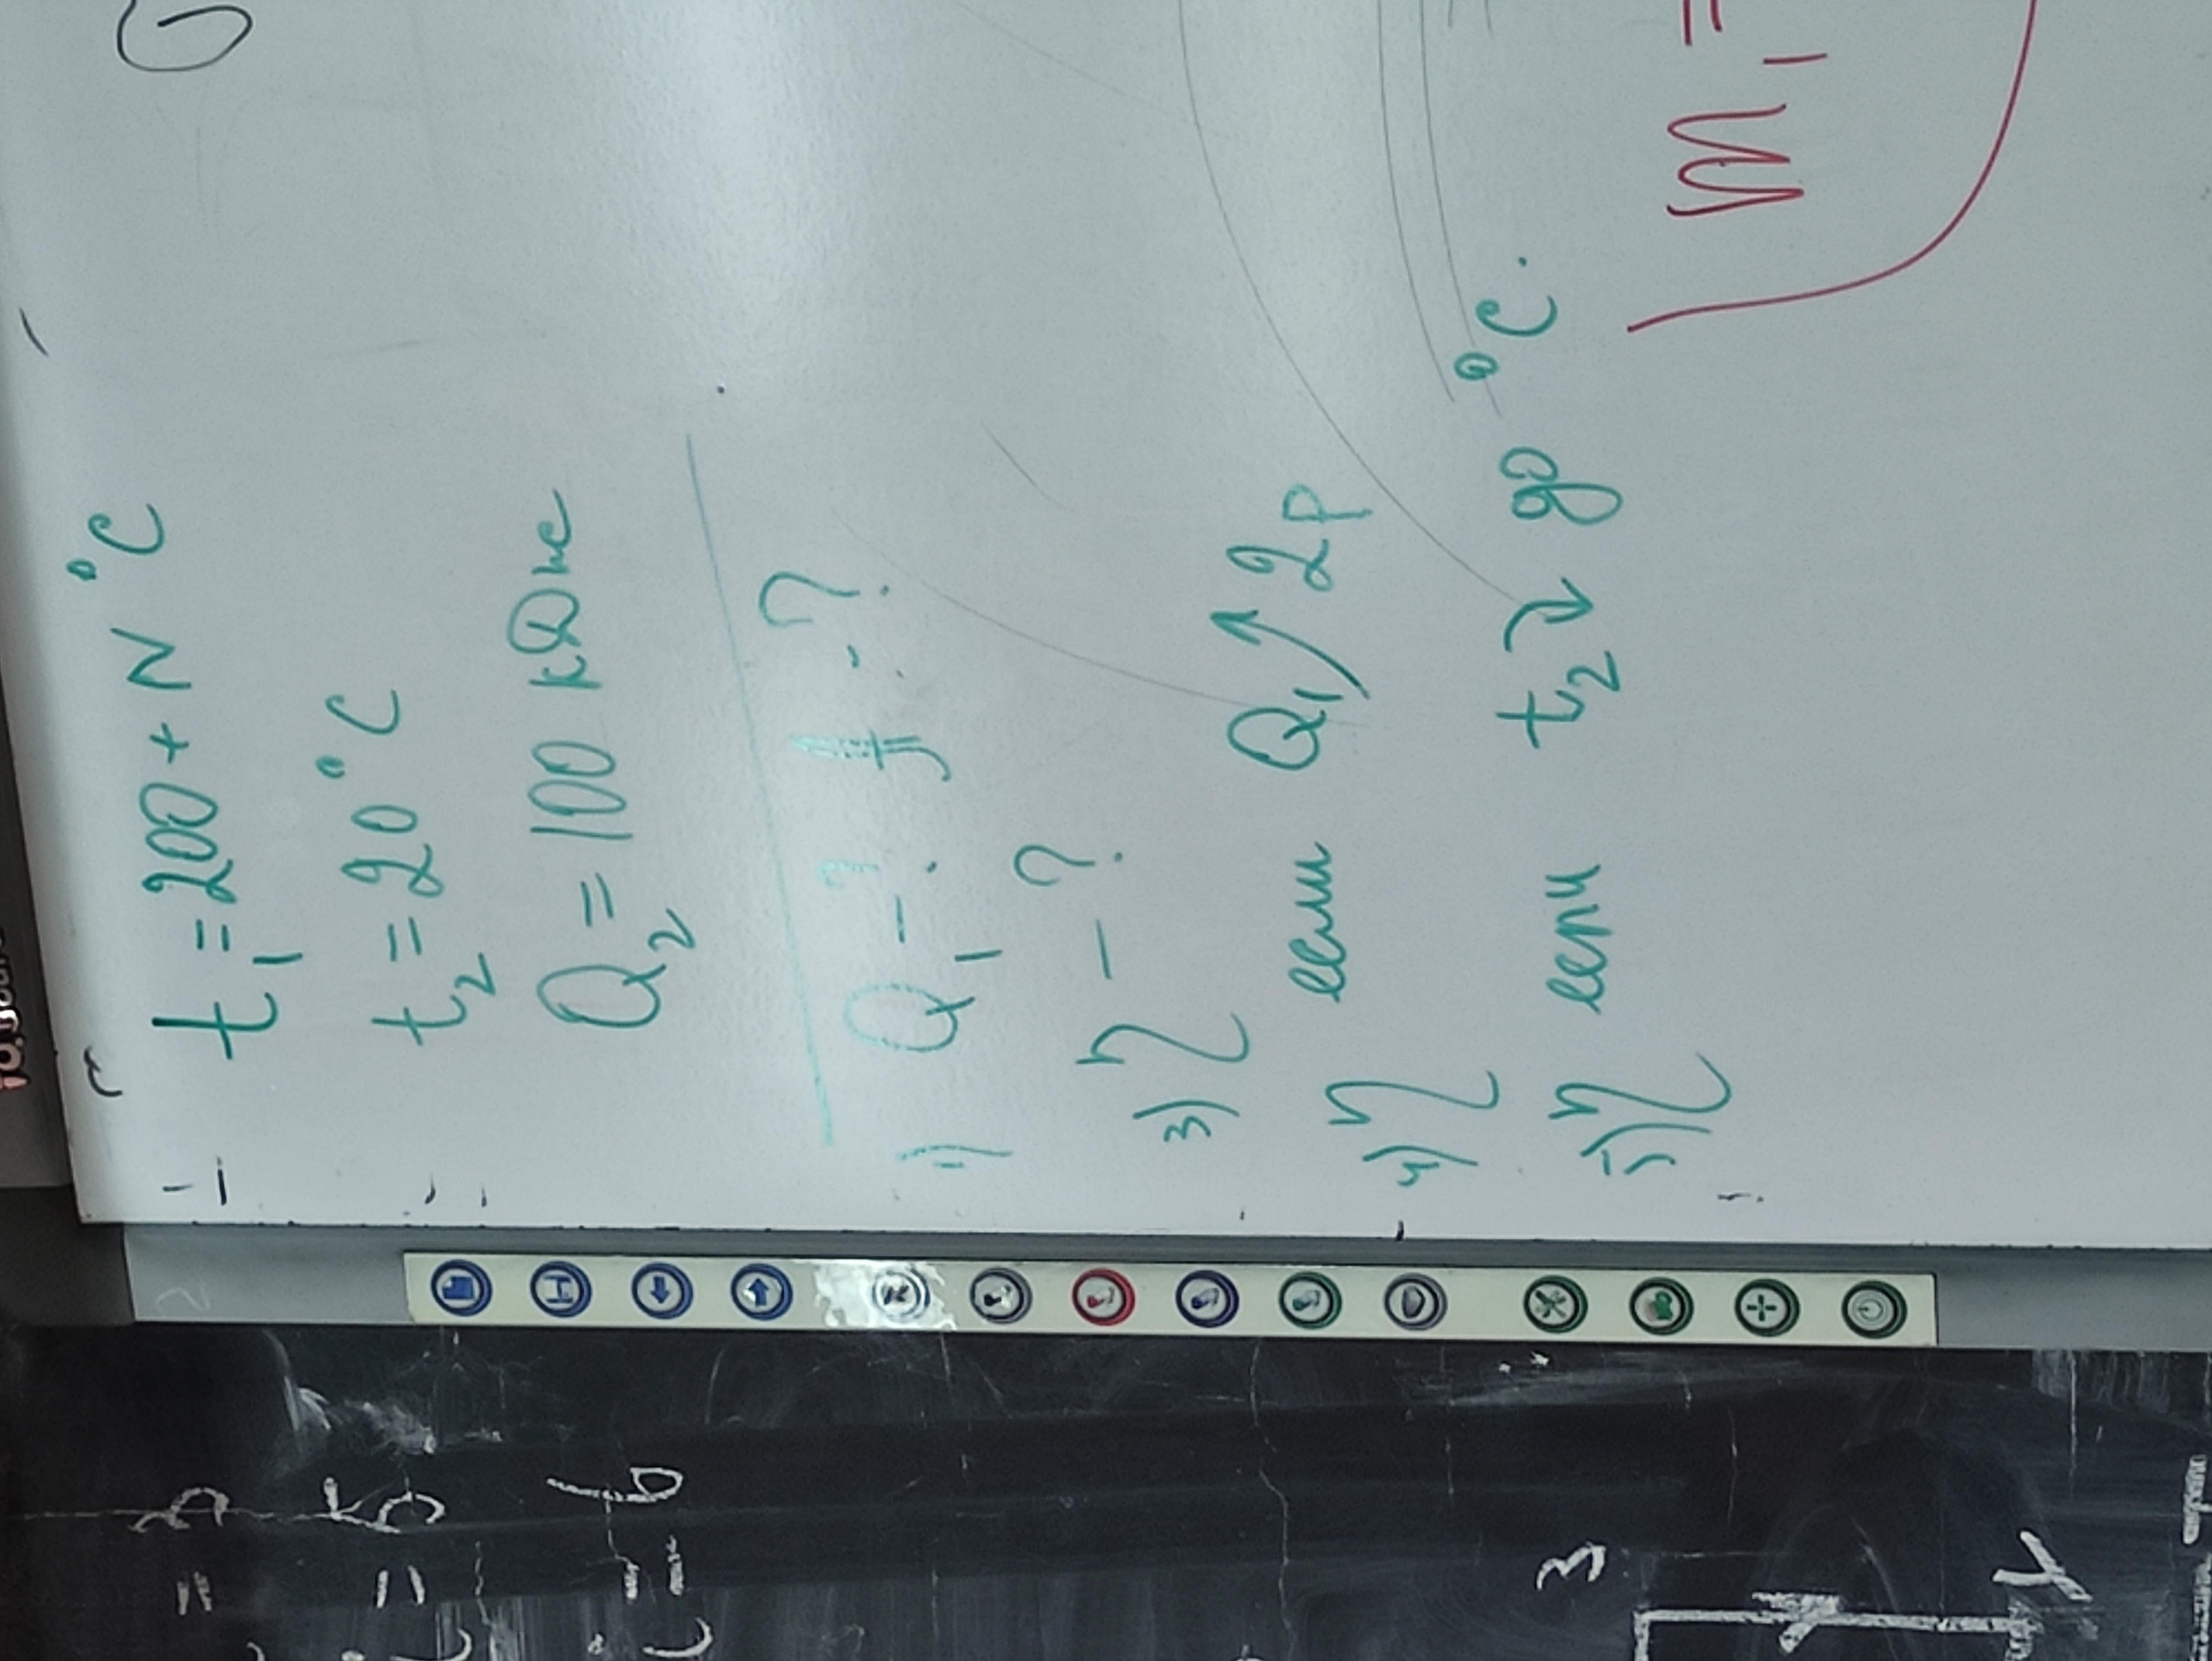 t₁ = 200 + N °C
t₂ = 20 °C
Q₂ = 100 кДж
1) Q₁ - ? A - ?
3) η - ?
4) η если Q₁ ↗ 2р
5) η если t₂ ↘ до °C.
m₁ =
3